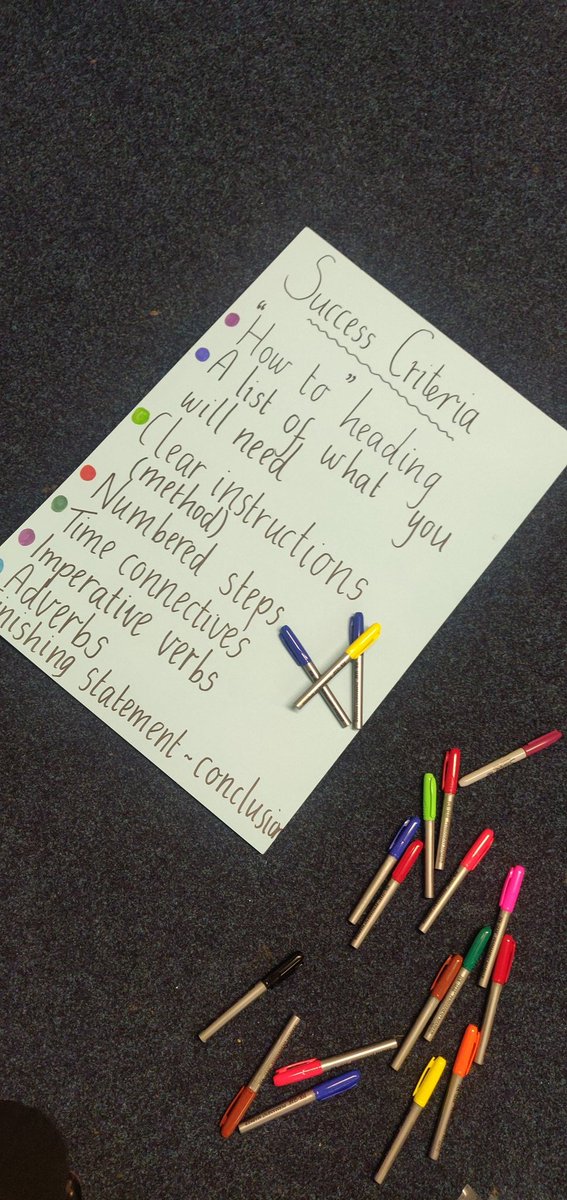 Success Criteria
"How to" heading
A list of what you
will need
Clear instructions
(method)
Numbered steps
Time connectives
Imperative verbs
Adverbs
inishing statement ~ conclusion